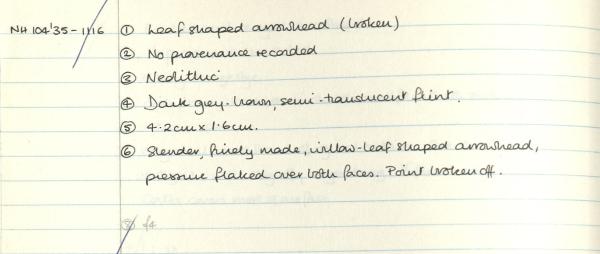 NH 104'35-1116 ① Leaf shaped arrowhead (broken)
② No provenance recorded
③ Neolithic
④ Dark grey-brown, semi-translucent flint.
⑤ 4.2cm x 1.6cm.
⑥ Slender, finely made, willow-leaf shaped arrowhead,
pressure flaked over both faces. Point broken off.
⑧ f4